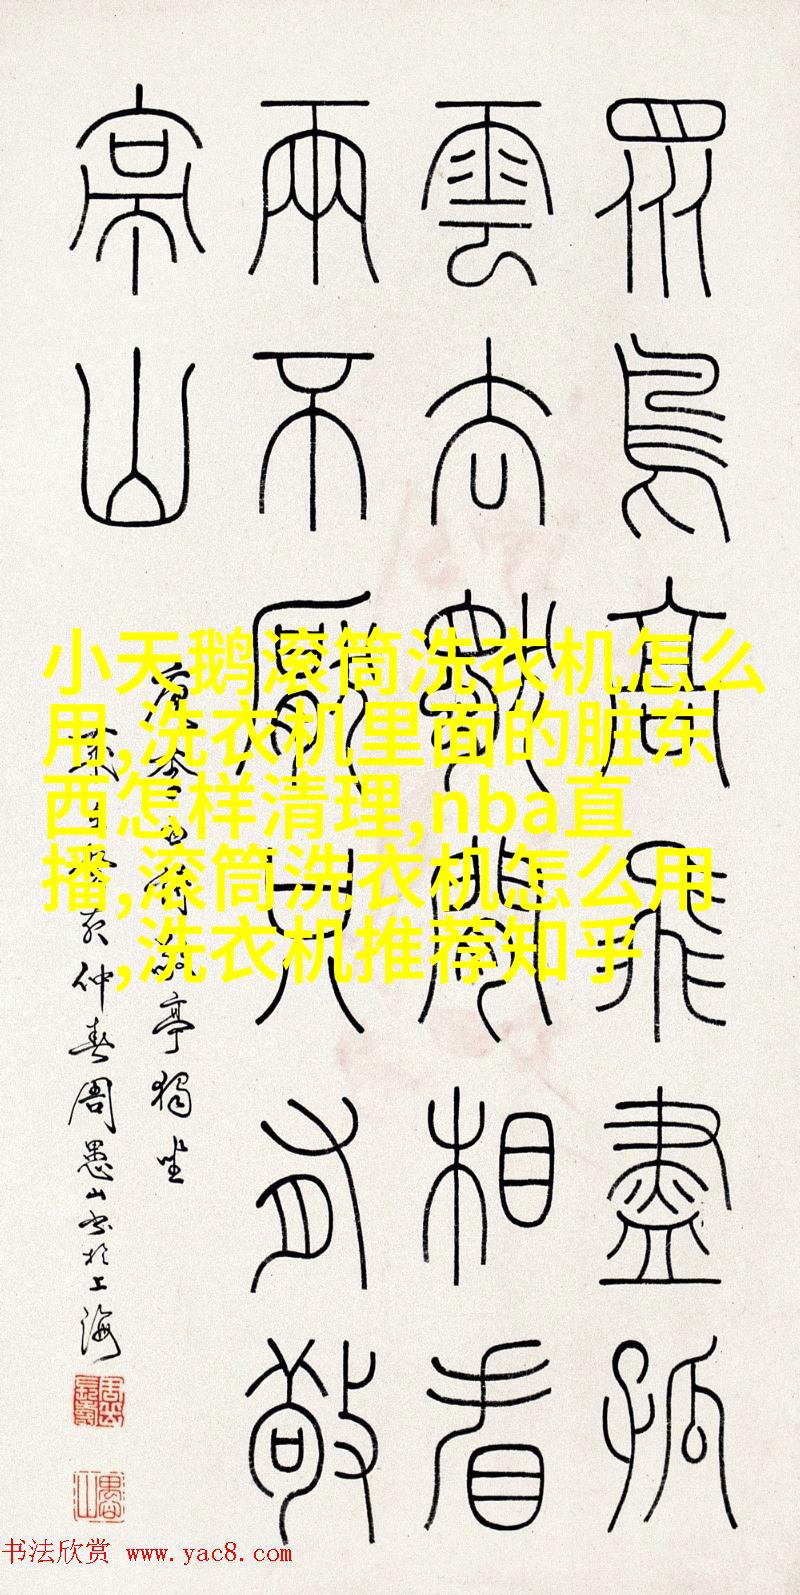 眾鳥高飛盡孤
雲去獨閒相看
兩不厭只有敬
亭山
亭獨坐
仲春周愚山書於上海
小天鹅滚筒洗衣机怎么
用,洗衣机里面的脏东
西怎样清理,nba直
播,滚筒洗衣机怎么用
,洗衣机推荐知乎
书法欣赏 www.yac8.com